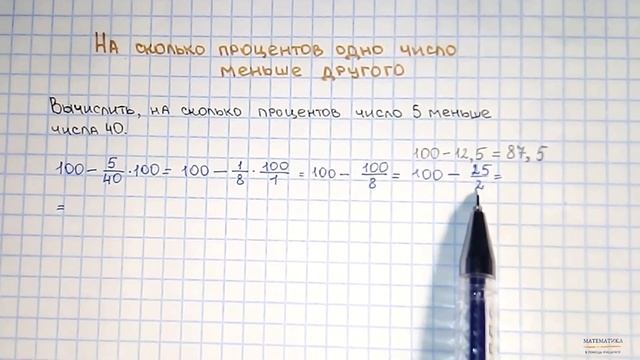 На сколько процентов одно число
меньше другого
Вычислить, на сколько процентов число 5 меньше
числа 40.
100-12,5=87,5
100 - 5/40 · 100 = 100 - 1/8 · 100/1 = 100 - 100/8 = 100 - 25/2 =
=
МАТЕМАТИКА